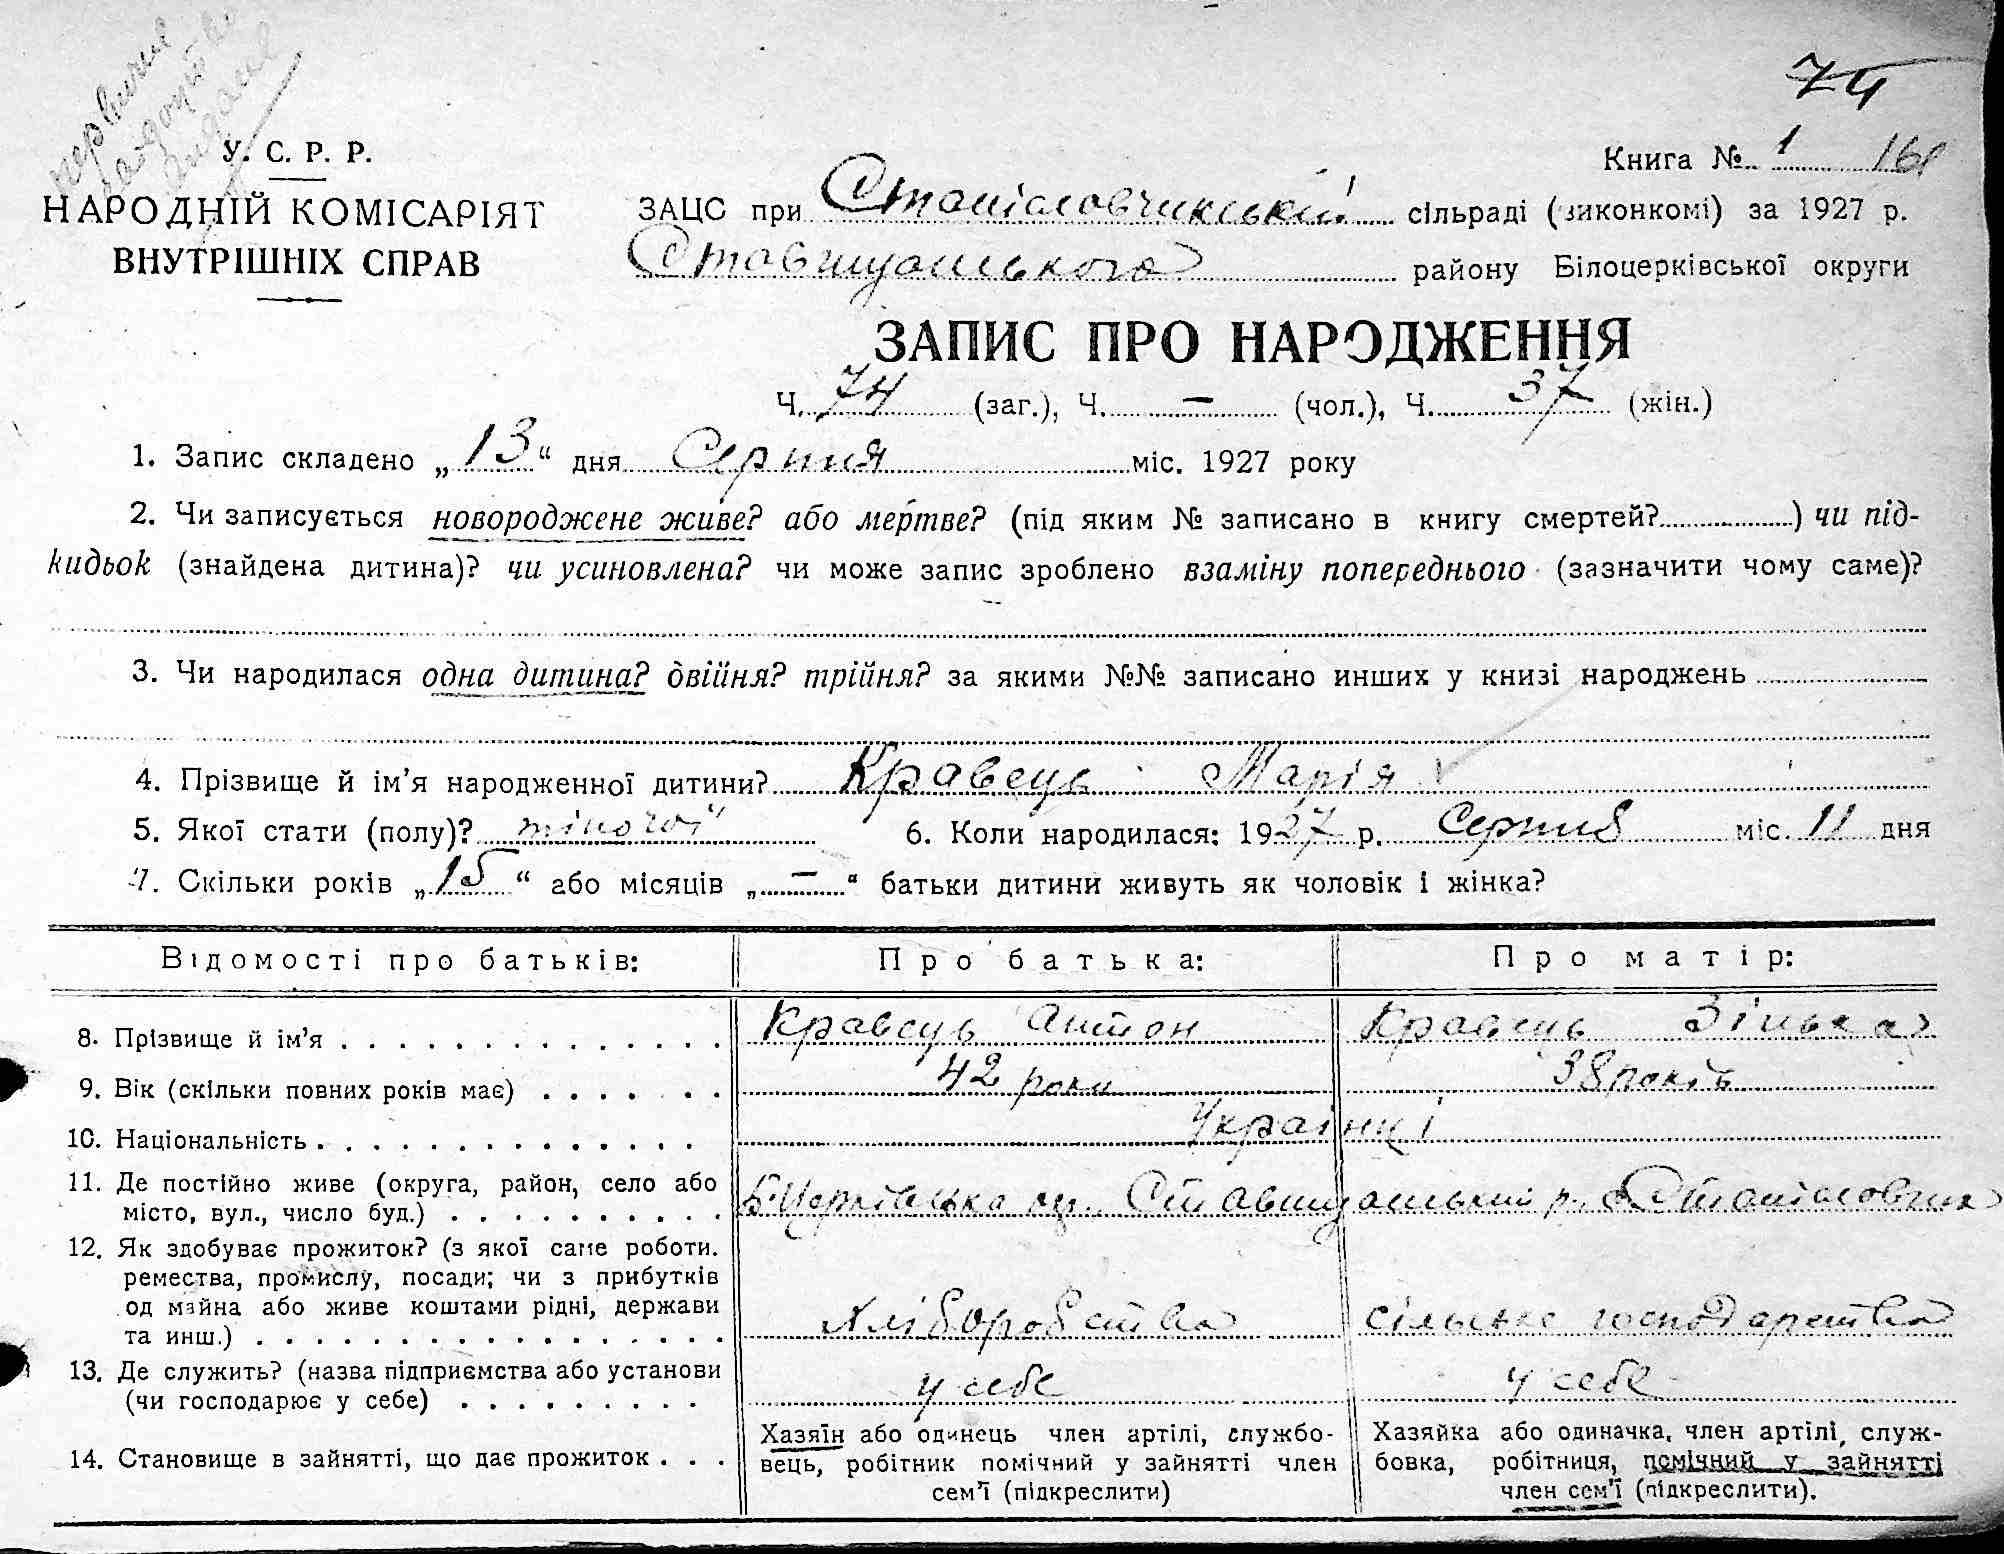 74
первичне
видане
У. С. Р. Р.
НАРОДНІЙ КОМІСАРІЯТ
ВНУТРІШНІХ СПРАВ
Книга № 1 161
ЗАЦС при Станіславчикській сільраді (виконкомі) за 1927 р.
Ставищанського району Білоцерківської округи
ЗАПИС ПРО НАРОДЖЕННЯ
Ч. 74 (заг.), Ч. — (чол.), Ч. 37 (жін.)
1. Запис складено „13“ дня Серпня міс. 1927 року
2. Чи записується новороджене живе? або мертве? (під яким № записано в книгу смертей?) чи під-
кидьок (знайдена дитина)? чи усиновлена? чи може запис зроблено взаміну попереднього (зазначити чому саме)?
3. Чи народилася одна дитина? двійня? трійня? за якими №№ записано инших у книзі народжень
4. Прізвище й ім’я народженної дитини? Кравець Марія
5. Якої стати (полу)? жіночої 6. Коли народилася: 1927 р. Серпня міс. 11 дня
7. Скільки років „15“ або місяців „—“ батьки дитини живуть як чоловік і жінка?
Відомості про батьків: Про батька: Про матір:
8. Прізвище й ім’я Кравець Антон Кравець Зінька
9. Вік (скільки повних років має) 42 роки 38 років
10. Національність Українці
11. Де постійно живе (округа, район, село або
місто, вул., число буд.) Б-Церківська ок., Ставищанський р. с. Станіславчик
12. Як здобуває прожиток? (з якої саме роботи.
ремества, промислу, посади; чи з прибутків
од майна або живе коштами рідні, держави
та инш.) Хліборобства сільське господарства
13. Де служить? (назва підприємства або установи
(чи господарює у себе) у себе у себе
14. Становище в зайнятті, що дає прожиток
Хазяїн або одинець член артілі, службо-
вець, робітник помічний у зайнятті член
сем’ї (підкреслити)
Хазяйка або одиначка, член артілі, служ-
бовка, робітниця, помічний у зайнятті
член сем’ї (підкреслити).